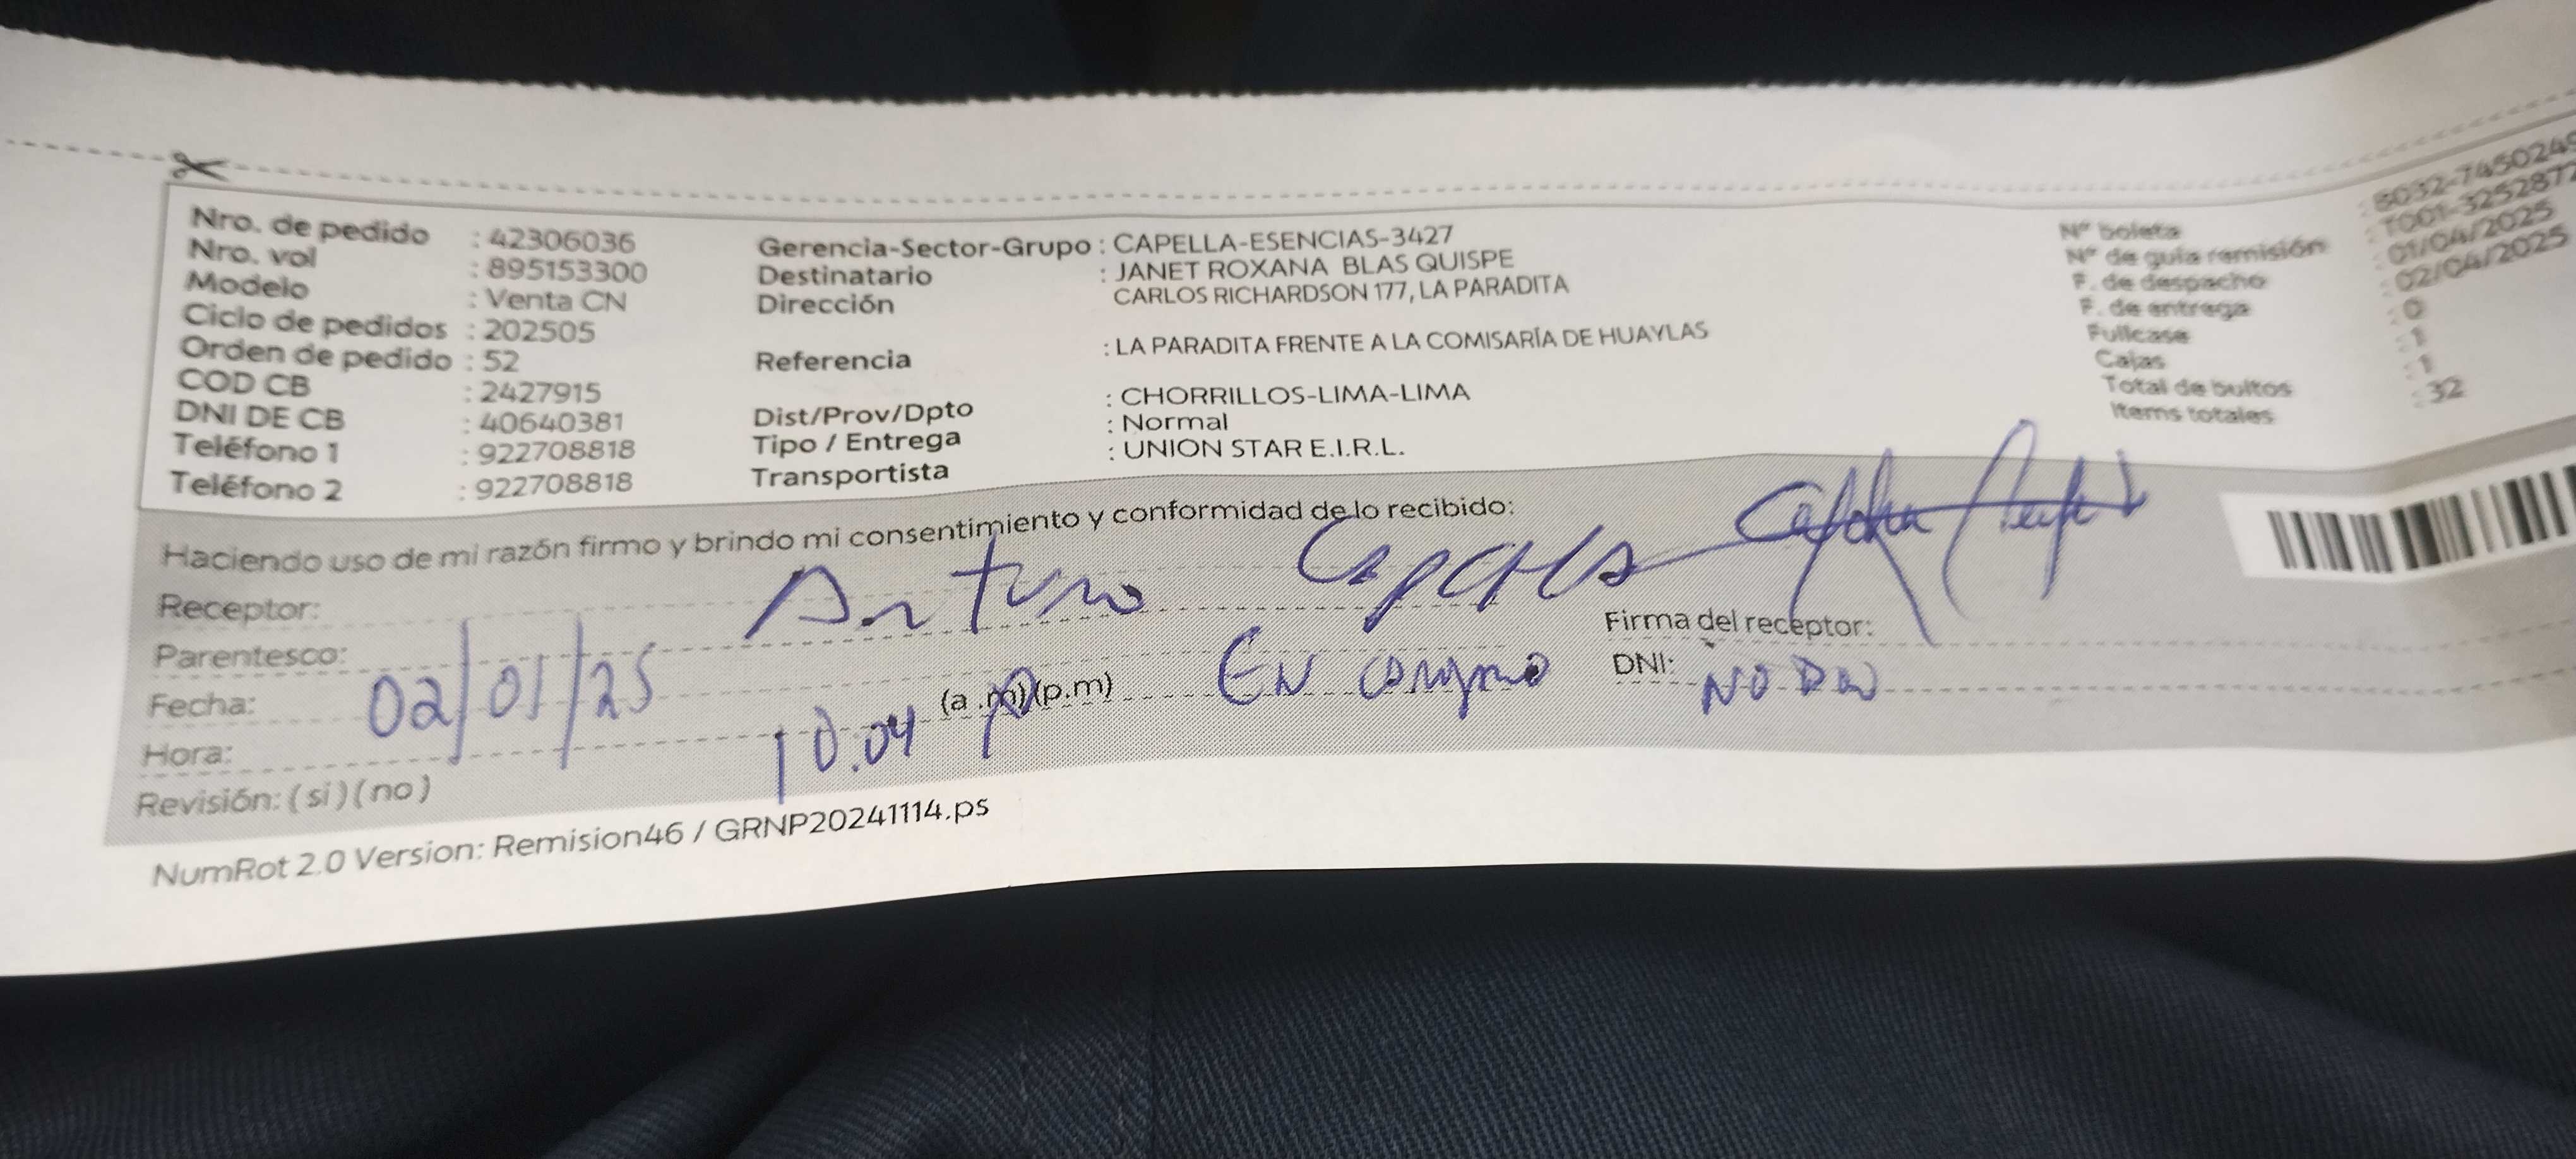 Nro. de pedido : 42306036
Nro. vol : 895153300
Modelo : Venta CN
Ciclo de pedidos : 202505
Orden de pedido : 52
COD CB : 2427915
DNI DE CB : 40640381
Teléfono 1 : 922708818
Teléfono 2 : 922708818
Gerencia-Sector-Grupo : CAPELLA-ESENCIAS-3427
Destinatario : JANET ROXANA BLAS QUISPE
Dirección CARLOS RICHARDSON 177, LA PARADITA
Referencia : LA PARADITA FRENTE A LA COMISARÍA DE HUAYLAS
Dist/Prov/Dpto : CHORRILLOS-LIMA-LIMA
Tipo / Entrega : Normal
Transportista : UNION STAR E.I.R.L.
N° boleta : B032-7450249
N° de guía remisión : T001-3252872
F. de despacho : 01/04/2025
F. de entrega : 02/04/2025
Fullcase : 0
Cajas : 1
Total de bultos : 1
Items totales : 32
Haciendo uso de mi razón firmo y brindo mi consentimiento y conformidad de lo recibido:
Receptor: Arturo
Parentesco:
Firma del receptor:
Fecha: 02/01/25
DNI: NO
Hora: 10.04 (a .m)(p.m) EN
Revisión: ( si ) ( no )
NumRot 2.0 Version: Remision46 / GRNP20241114.ps